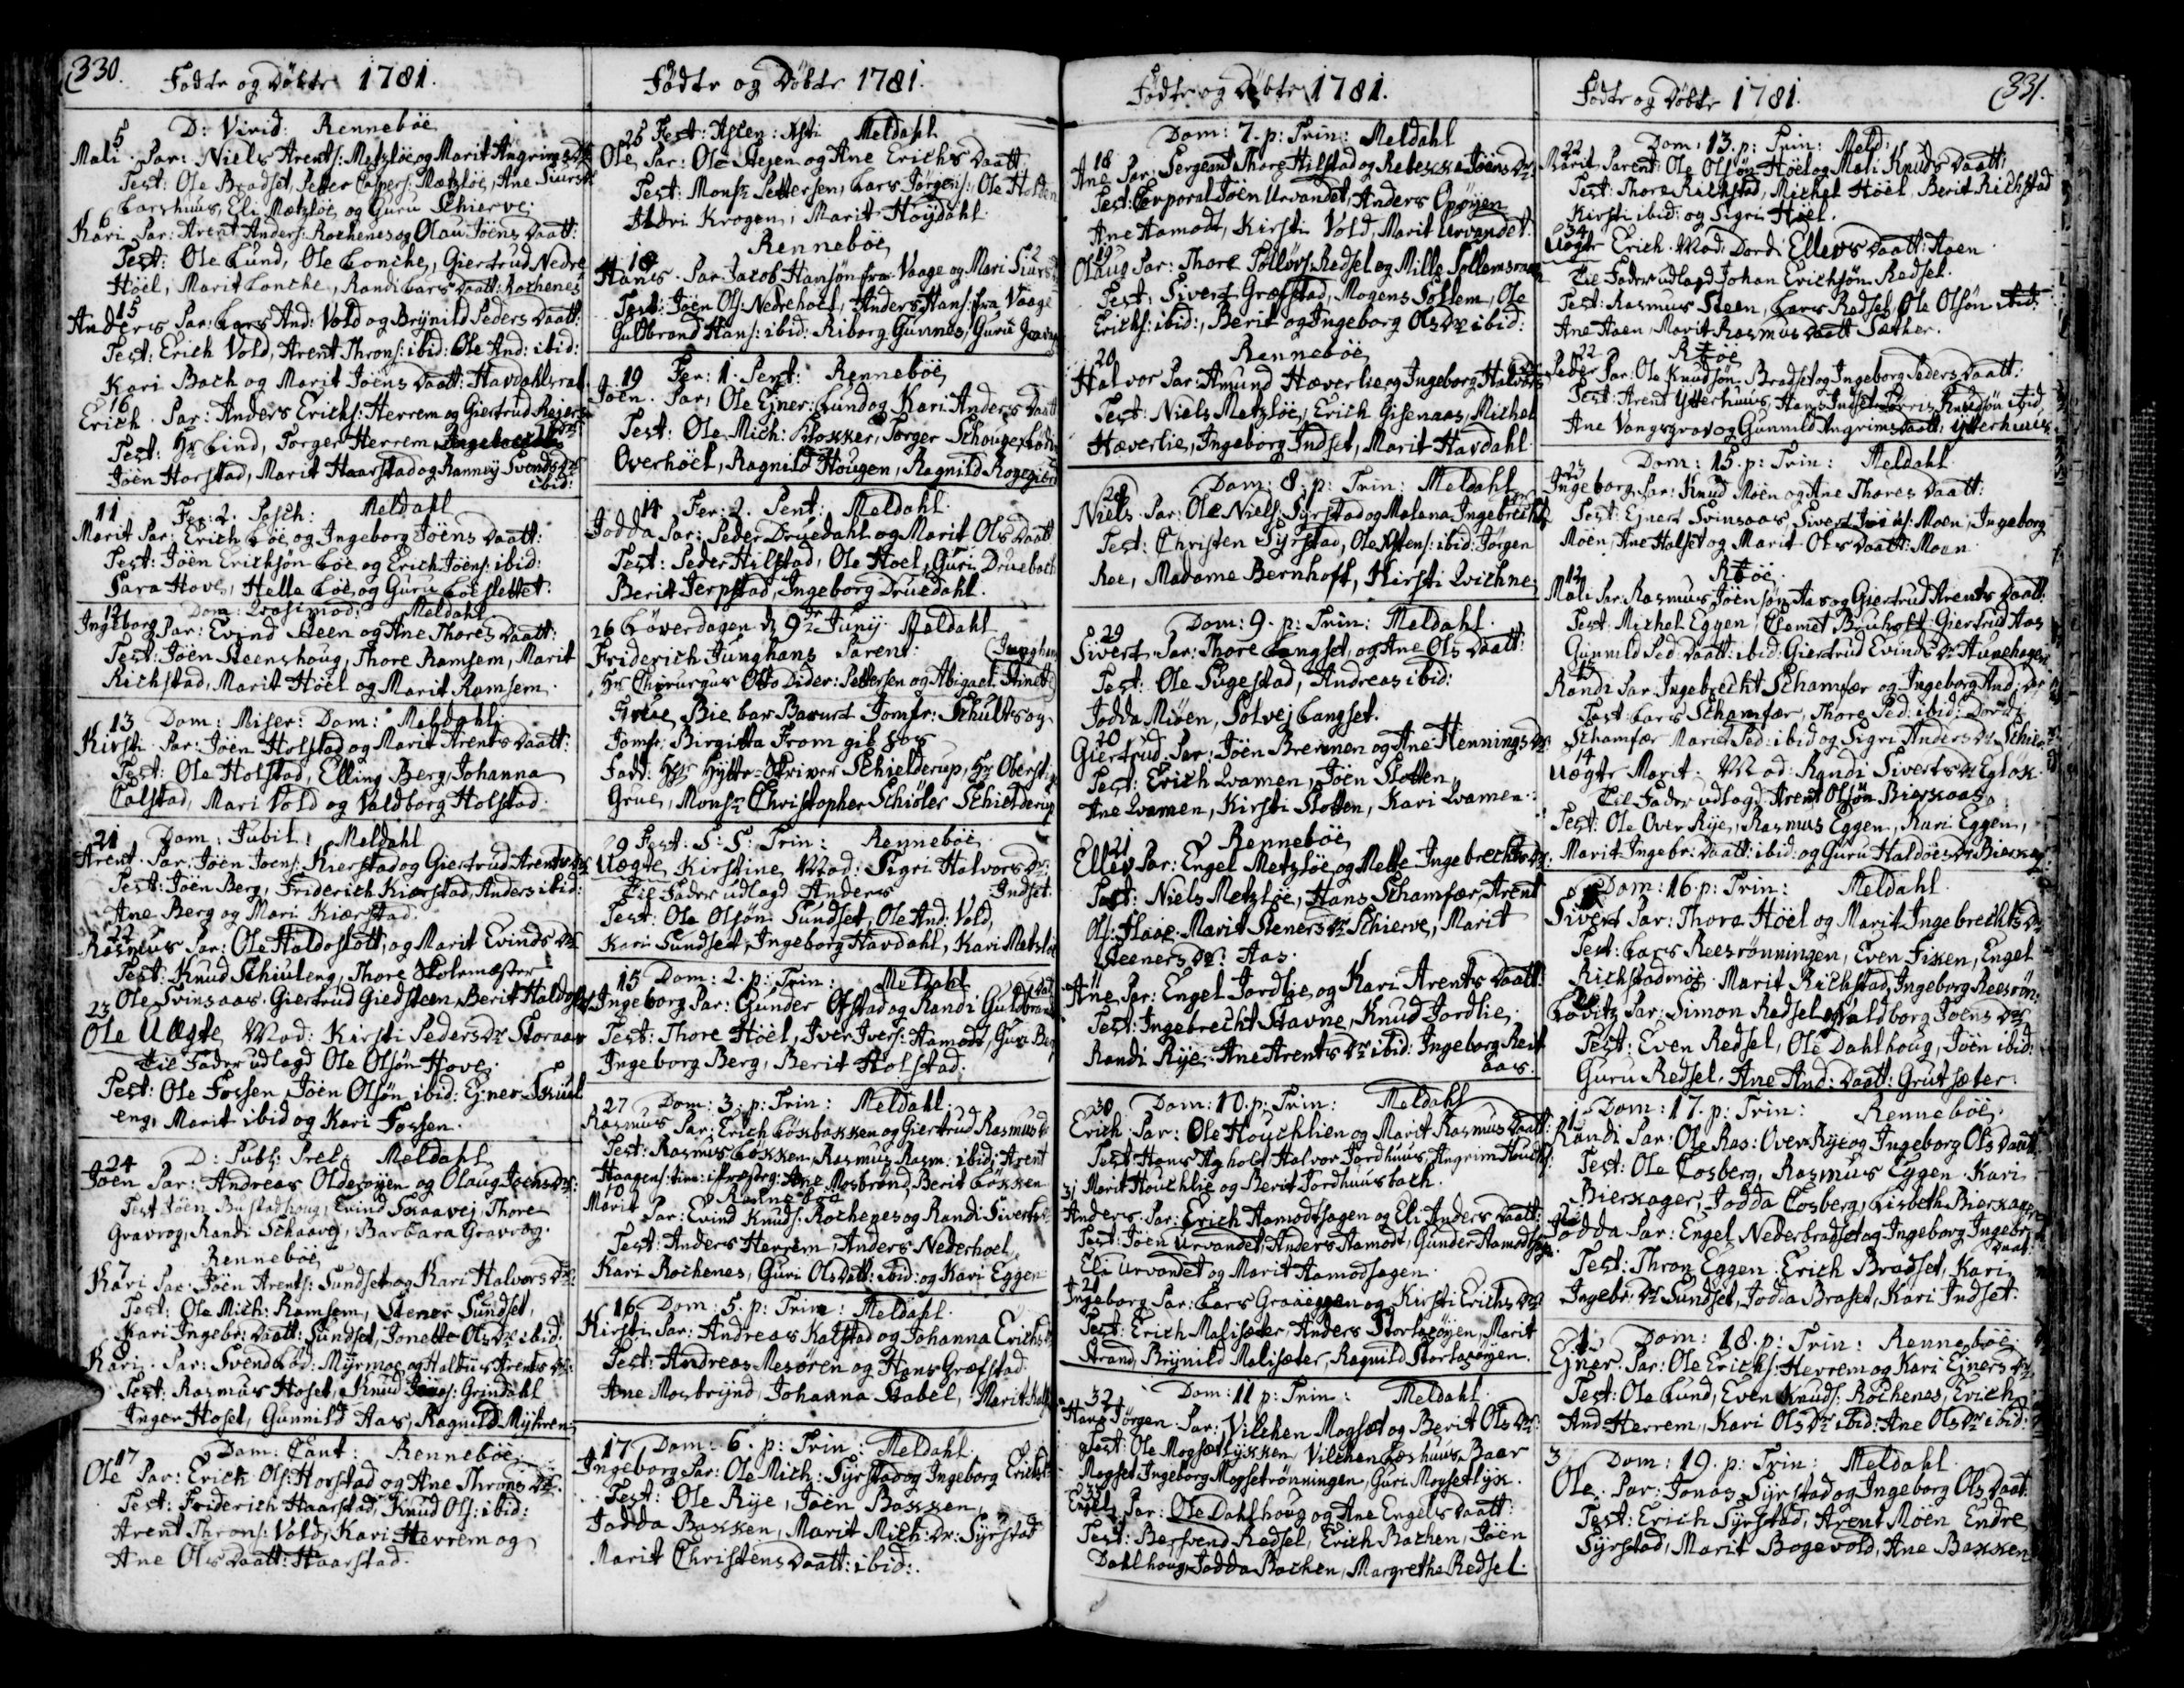 330.
Fødte og Døbte 1781.
D: Virid: Rennebøe
5
Mali. Par: Niels Arents: Metzløe og Marit Angrims Dr
Test: Ole Bradset, Petter Caspers: Metzløe, Ane Siurs Dr
Larshuus, Eli Metzløe og Guru Schierve.
6
Kari Par: Arent Anders: Rochenes og Olau Joens Daatt:
Test: Ole Lund, Ole Lonche, Giertrud Nedre
Höel, Marit Lonche, Randi Lars Daatt: Rochenes
15
Anders Par: Lars And: Vold og Brynild Peders Daatt:
Test: Erich Vold, Arent Throns: ibid: Ole And: ibid:
Kari Bach og Marit Joens Daatt: Havdahlsrat
16
Erich. Par: Anders Erichs: Herrem og Giertrud Reiers Dr
Test: Hr Lind, Torger Herrem
Joen Horstad, Marit Haarstad og Ranney Svends Dr
ibid:
11 Fer: 2. Pasch: Meldahl
Marit Par: Erich Løe, og Ingeborg Joëns Daatt:
Test: Joën Erichsøn Løe og Erich Joëns: ibid:
Sara Hove, Helle Løe, og Guru Løeslettet.
12 Dom: Qvasimod: Meldahl
Ingeborg Par: Evind Steen og Ane Thores Daatt:
Test: Joën Steenshoug, Thore Ramsem, Marit
Richstad, Marit Höel og Marit Ramsem.
13 Dom: Miser: Dom: Meldahl
Kirsti. Par: Joën Holstad og Marit Arents Daatt:
Test: Ole Holstad, Elling Berg, Johanna
Calstad, Mari Vold og Valdborg Holstad.
21 Dom: Jubil: Meldahl
Arent. Par: Joën Joens: Kierstad og Giertrud Arents Dr
Test: Joën Berg, Friderich Kiærstad, Anders ibid:
Ane Berg og Mari Kiærstad.
22
Rasmus Par: Ole Haldoslott, og Marit Evinds Dr
Test: Knud Schiuleng, Thore Skolemæster
Ole Svinsaas. Giertrud Giedsteen, Berit Haldos
23
Ole Uægte Mod: Kirsti Peders Dr Storaas
Til Fader udlagd Ole Olsøn Hove.
Test: Ole Fossen, Joën Olsøn ibid: Ejner Skiul
eng, Marit ibid og Kari Fossen.
24 D: Publ: Prec: Meldahl
Joën Par: Andreas Oldesøyen og Olaug Joens Dr:
Test Joën Bustadhoug, Evind Skaavej, Thore
Gravrog, Randi Schaavej, Barbara Gravrog.
Rennebøe
7
Kari Par. Joën Arents: Sundset og Kari Halvors Dr:
Test: Ole Mich: Ramsem, Stener Sundset,
Kari Ingebr: Daatt: Sundset, Jonette Ols Dr ibid:
Kari. Par: Svend Lod: Myrmoe og Haldis Arents Dr:
Test: Rasmus Hoset, Knud Joens: Grindahl
Inger Hoset, Gunnild Aas, Ragnild Myhren.
17 Dom: Cant: Rennebøe
Ole Par: Erich Ols: Horstad og Ane Throns Dr.
Test: Friderich Haarstad, Knud Ols: ibid:
Arent Throns: Vold, Kari Herrem og
Ane Ols Daatt: Haarstad.
Fødte og Døbte 1781.
25 Fest: Ascen: Xsti Meldahl
Ole, Par: Ole Stesen og Ane Erichs Daatt:
Test: Monsr Pettersen, Lars Jørgens: Ole Holten
Aldri Krogen, Marit Høydahl.
Rennebøe
18
Hans. Par Jacob Hansøn fra Vaage og Mari Siurs Dr
Test: Joën Ols: Nedrehoel, Anders Hans: fra Vaage
Guldbrand Hans: ibid: Riborg Gunnes, Guru
19 Fer: 1. Pent: Rennebøe
Joën. Par, Ole Ejner: Lund og Kari Anders Daatt
Test: Ole Mich: Klokker, Torger Schouge,
Overhöel, Ragnild Hougen, Ragnild Rogegierd
14 Fer: 2. Pent: Meldahl.
Jodda Par: Peder Druedahl og Marit Ols Daatt
Test: Peder Hilstad, Ole Hoel, Guri Druebach
Berit Jerpstad, Ingeborg Druedahl.
26 Løverdagen d 9de Junij Meldahl
Friderich Junghans Parent:
Hr Chirurgus Otto Dider: Pettersen og Abigael Hinet:
Junghans
Frue Bie bar Barnet Jomfr: Schults og
Jomfr: Birgitta From gik hos
Fadd: Hr Hytte-Skriver Schielderup, Hr Oberstig
Grue, Monsr Christopher Schiøler Schielderup
29 Fest: S: S: Trin: Rennebøe
Uægte Kirstine, Mod: Sigri Halvors Dr:
Til Fader udlagd Anders Indset.
Test: Ole Olsön Sundset, Ole And: Vold,
Kari Sundset, Ingeborg Havdahl, Kari Metzløe
15 Dom: 2. p: Trin: Meldahl
Ingeborg Par: Gunder Ofstad og Randi Guldbrands Daatt
Test: Thore Höel, Iver Ivers: Aamodt, Guri Berg
Ingeborg Berg, Berit Holstad.
27 Dom: 3. p: Trin: Meldahl.
Rasmus Par: Erich Løkbakken og Giertrud Rasmus Dr
Test: Rasmus Løkken, Rasmus Rasm: ibid: Arent
Haagens: Ane Mosbrond, Berit Løkken
Rennebøe
10
Marit Par: Evind Knuds: Rochenes og Randi Siverts Dr
Test: Anders Herrem, Anders Nederhoel,
Kari Rochenes, Guri Ols Datt: ibid: og Kari Eggen
16 Dom: 5. p: Trin: Meldahl
Kirsti Par: Andreas Kalstad og Johanna Erichs Dr
Test: Andreas Mesøren og Hans Græfstad
Ane Mosbrynd, Johanna Stabel, Marit
17 Dom: 6. p: Trin: Meldahl.
Ingeborg Par: Ole Mich: Syrstad og Ingeborg Erichs Dr
Test: Ole Rye, Joën Bakken,
Jodda Bakken, Marit Mich: Dr: Syrstad
Marit Christens Daatt: ibid:.
Fødte og Døbte 1781.
Dom: 7. p: Trin: Meldahl
18
Ane Par: Sergeant Thore Hilstad og Rebekka Joëns Dr:
Test: Corporal Joën Urvandet, Anders Opøyen
Ane Aamodt, Kirsti Vold, Marit Urvandet.
19
Olaug Par: Thore Tolløvs: Redsel og Mille Sollemsraan
Test: Sivert Græfstad, Mogens Sollem, Ole
Erichs: ibid:, Berit og Ingeborg Ols Dr ibid:
Rennebøe
20
Halvor Par: Amund Hæverlie og Ingeborg Halvors Dr
Test: Niels Metzløe, Erich Gisenaas, Michel
Hæverlie, Ingeborg Indset, Marit Havdahl
Dom: 8. p: Trin: Meldahl
28
Niels. Par: Ole Niels: Syrstad og Malena Ingebrechts Dr
Test: Christen Syrstad, Ole Østens: ibid: Jørgen
Ree, Madame Bernhoft, Kirsti Qvichne
Dom: 9. p: Trin: Meldahl.
29
Sivert Par: Thore Langset, og Ane Ols Daatt:
Test: Ole Sugestad, Andreas ibid:
Jodda Miøen, Solvej Langset.
20
Giertrud. Par: Joën Bremnen og Ane Hennings Dr:
Test: Erich Qvamen, Joën Slotten,
Ane Qvamen, Kirsti Slotten, Kari Qvamen:
21 Rennebøe
Ellev Par: Engel Metzløe, og Mette Ingebrechts Dr.
Test: Niels Metzløe, Hans Schamfær, Arent
Ols: Flaae. Marit Steners Dr Schierve, Marit
Steeners Dr: Aas.
11
Ane Par: Engel Jordlie og Kari Arents Daatt:
Test: Ingebrecht Stavne, Knud Jordlie,
Randi Rye, Ane Arents Dr ibid: Ingeborg Reit
aas.
30 Dom: 10. p: Trin: Meldahl
Erich Par: Ole Houchlien og Marit Rasmus Daatt:
Test: Hans Agholt, Halvor Jordhuus, Angrim Houchl:
Marit Houchlie og Berit Jordhuusbach.
31
Anders Par: Erich Aamodtsagen og Eli Anders Daatt:
Test: Joën Urvandet, Anders Aamodt, Gunder Aamodtsagen
Eli Urvandet og Marit Aamodsagen.
21
Ingeborg Par: Lars Graaeggen og Kirsti Erichs Dr
Test: Erich Malisæter, Anders Storlasøyen, Marit
Strand, Brynild Malisæter, Ragnild Storlasøyen.
32 Dom: 11 p: Trin: Meldahl
Hans Jörgen. Par: Vilchen Mogset og Berit Ols Dr:
Test: Ole Mogsætlykken, Vilchen Løshuus, Baar
Mogset, Ingeborg Mogsetrønningen, Guri Mogsetlyk.
33
Engel Par: Ole Dahlhoug og Ane Engels Daatt:
Test: Bersvend Redsel, Erich Bachen, Joën
Dahlhoug, Jodda Bachen, Margrethe Redsel.
Fødte og Døbte 1781.
331.
Dom: 13. p: Trin: Meld:
22
Marit. Parent: Ole Olsøn Höel og Mali Knuds Daatt:
Test: Thore Richstad, Michel Höel, Berit Richstad
Kirsti ibid: og Sigri Höel.
34
Uægte Erich. Mod: Dordi Ellevs Daatt: Aaen
Til Fader udlagd Johan Erichsøn Redsel.
Test: Rasmus Steen, Lars Redsel, Ole Olsøn ibid:
Ane Aaen, Marit Rasmus Daatt Sæther.
Rbøe
22
Peder Par: Ole Knudsøn Bradset og Ingeborg Peders Daatt:
Test: Arent Ytterhuus, Hans Indset, Joëns Knudsøn ibid
Ane Vangsgrav og Gunnild Angrims Daatt: Ytterhuus.
Dom: 15. p: Trin: Meldahl.
23
Ingeborg. Par: Knud Moen og Ane Thores Daatt:
Test: Ejnert Svinsaas, Sivert Joens: Moen, Ingeborg
Moen, Ane Halset og Marit Ols Daatt: Moen
Rbøe.
12
Mali Par: Rasmus Joënsøn Aas og Giertrud Arents Daatt:
Test: Michel Eggen, Clemet Bruhoft, Giertrud Aas
Gunnild Ped: Daatt: ibid: Giertrud Evinds Dr Hupehagen
13
Randi Par. Ingebrecht Schamfær og Ingeborg And: Dr
Test: Lars Schamfær, Thore Ped: ibid: Dordi
Schamfær Marit Ped: ibid og Sigri Anders Dr Schier
14
Uægte Marit. Mod: Randi Siverts Dr Egløk.
Til Fader udlagt Arent Olsøn Bierkaas.
Test: Ole Over Rye, Rasmus Eggen, Kari Eggen,
Marit Ingebr: Daatt: ibid: og Guru Haldoes Dr Bierkag:
Dom: 16. p: Trin: Meldahl
Sivert Par: Thore Höel og Marit Ingebrechts Dr
Test: Lars Reesrønningen, Even Fixen, Engel
Richstadmoe, Marit Richstad, Ingeborg Reesrøn:
Lovitz Par: Simon Redsel og Valdborg Joens Dr
Test: Even Redsel, Ole Dahlhoug, Joën ibid:
Guru Redsel, Ane And: Daatt: Grutsæter.
Dom: 17. p: Trin: Rennebøe.
Randi Par: Ole Ras: Over Rye og Ingeborg Ols Daatt
Test: Ole Cosberg, Rasmus Eggen. Kari
Bierkager, Jodda Cosberg, Lisbeth Bierkager
Jodda Par: Engel Nederbradset og Ingeborg Ingebr:
Daat:
Test: Thron Eggen. Erich Bradset, Kari
Ingebr: Dr Sundset, Jodda Braset, Kari Indset.
1. Dom: 18. p: Trin: Rennebøe.
Ejner. Par: Ole Erichs: Herrem og Kari Ejners Dr
Test: Ole Lund, Even Knuds: Rochenes, Erich
And: Herrem, Kari Ols Dr ibid: Ane Ols Dr ibid:
3. Dom: 19. p: Trin: Meldahl.
Ole. Par: Jonas Syrstad og Ingeborg Ols Daat:
Test: Erich Syrstad, Arent Moen Endre
Syrstad, Marit Bogevold, Ane Bakken